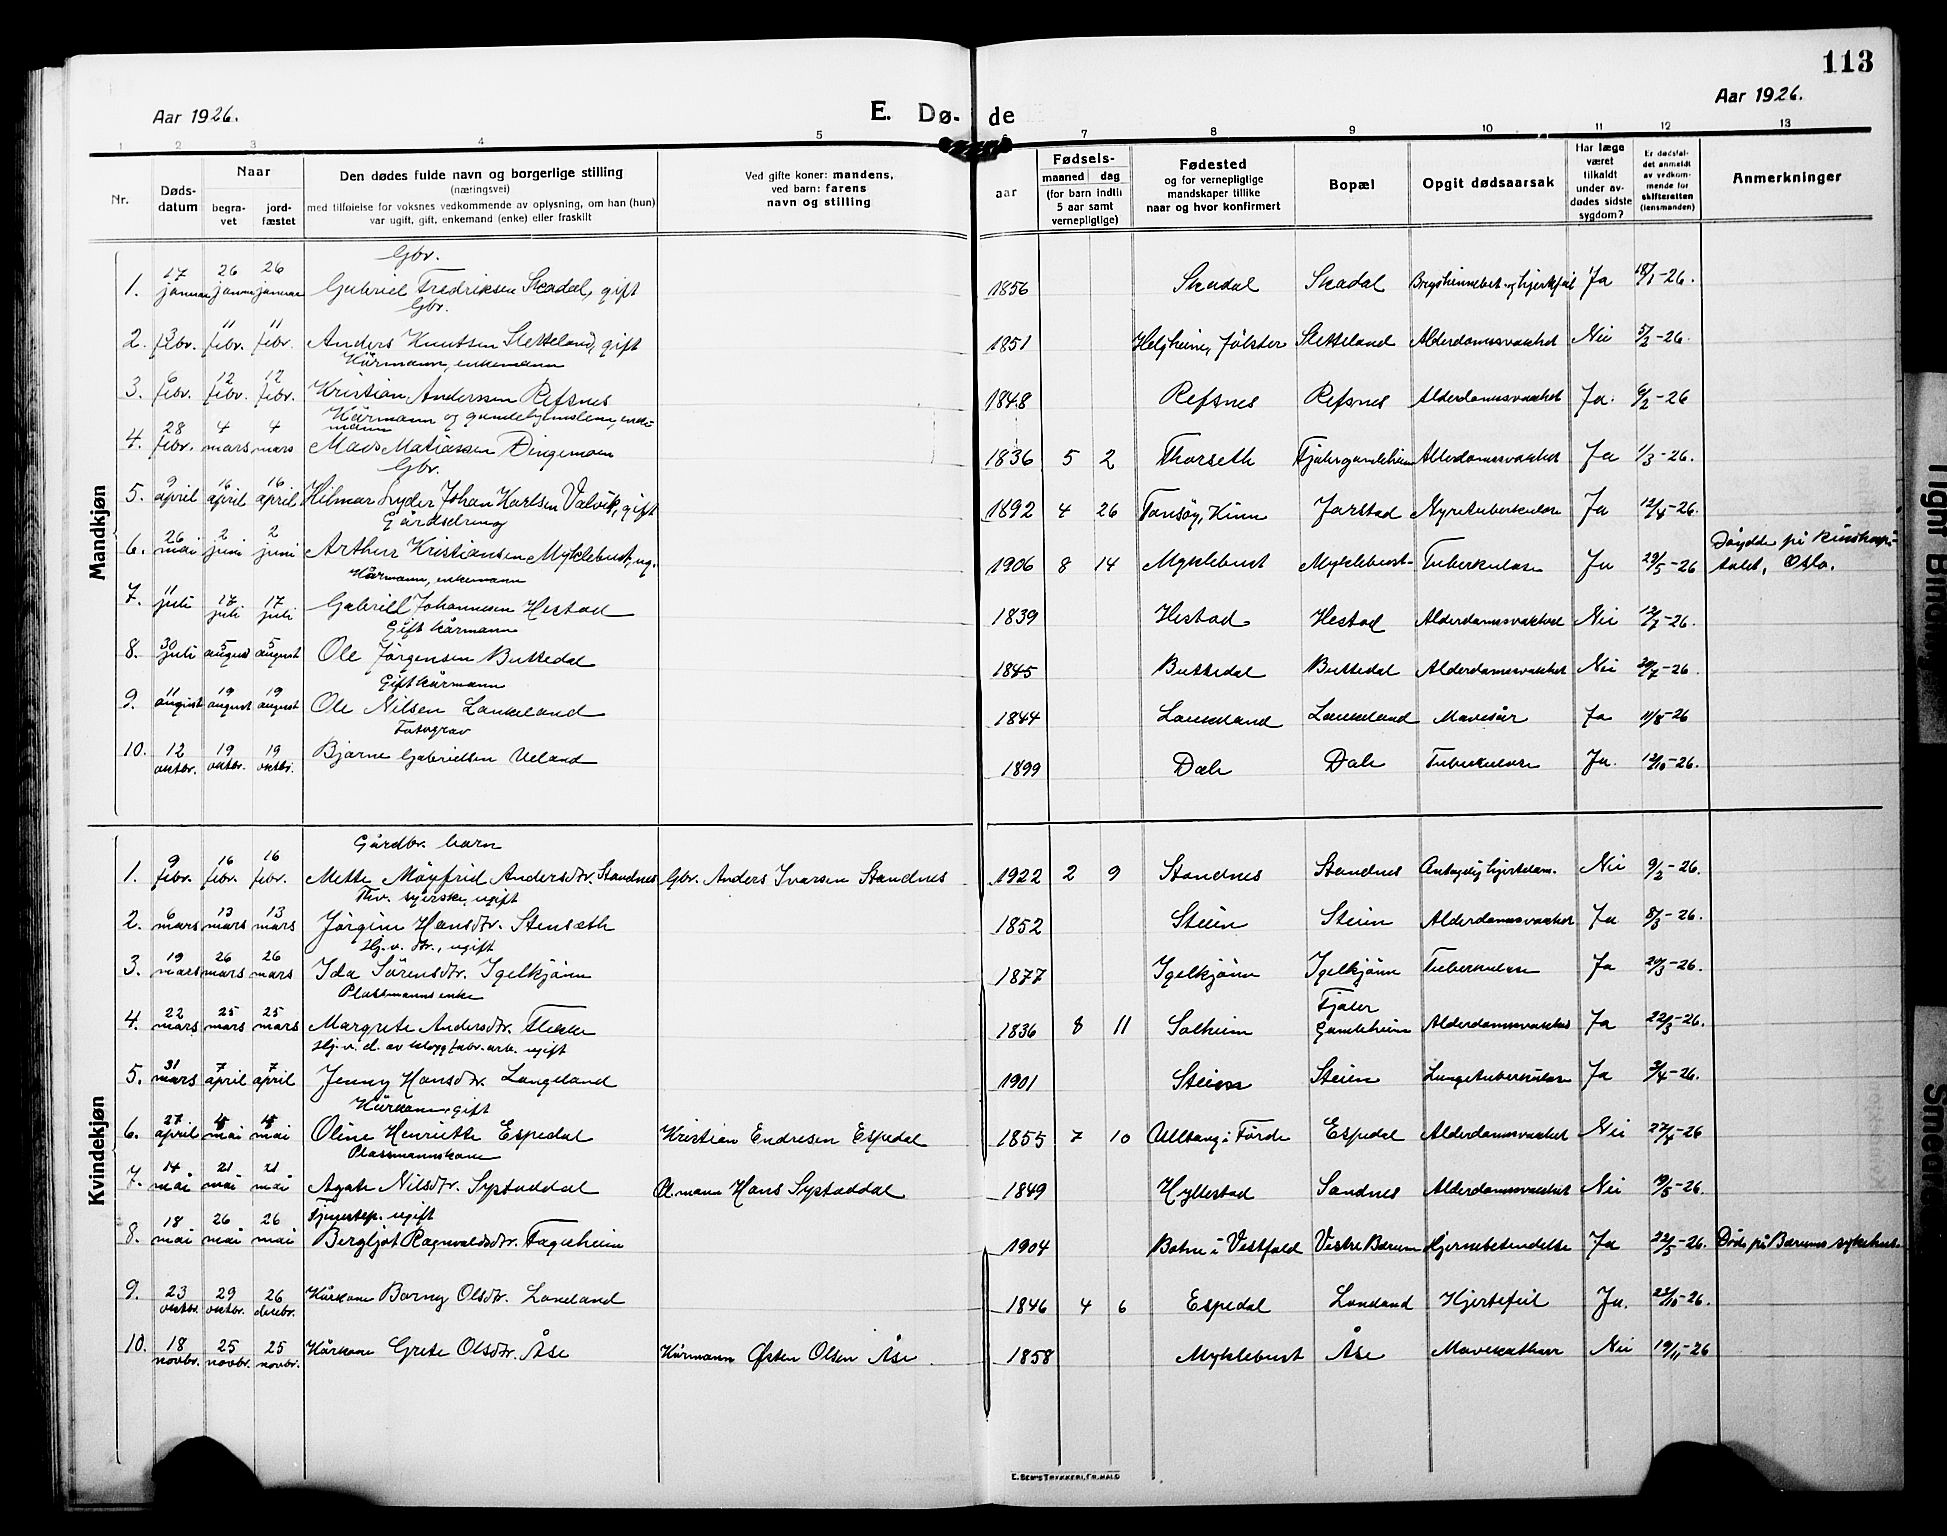 113
Aar 1926.
E. Dø- de
Aar 1926.
1 2 3 4 5 6 7 8 9 10 11 12 13
Nr.
Døds-
datum
Naar
begra-
vet
jord-
fæstet
Den dødes fulde navn og borgerlige stilling
(næringsvei)
med tilføielse for voksnes vedkommende av oplysning, om han (hun)
var ugift, gift, enkemand (enke) eller fraskilt
Ved gifte koner: mandens,
ved barn: farens
navn og stilling
Fødsels-
aar
maaned dag
(for barn indtil
5 aar samt
vernepligtige)
Fødested
og for vernepligtige
mandskaper tillike
naar og hvor konfirmert
Bopæl
Opgit dødsaarsak
Har læge
været
tilkaldt
under av-
dødes sidste
sygdom?
Er dødsfal-
det anmeldt
av vedkom-
mende for
skifteretten
(lensmanden)
Anmerkninger
Mandkjøn
Gbr.
1. 17 januar 26 januar 26 januar Gabriel Fredriksen Skadal, gift 1856 Skadal Skadal Ja 18/1-26.
Gbr.
2. febr. 11 febr. 11 febr. Anders Knutsen Sletteland, gift 1851 Helgheim, Jølster Sletteland Alderdomssvakhet Nei 5/2-26.
Kårmann, enkemann
3. 6 febr. 12 febr. 12 febr. Kristian Anderssen Refsnes 1848 Refsnes Refsnes Alderdomssvakhet Ja. 6/2-26
Kårmann og gamlehjemslem, enke-
mann
4. 28 febr. 4 mars 4 mars Mads Matiassen Dingemoen 1836 5 2 Thorseth Fjalergamleheim Alderdomssvakhet Ja 1/3-26.
Gbr.
5. 9 april 16 april 16 april Hilmar Lyder Johan Karlsen Valvik, gift 1892 4 26 Tansøy, Kinn Jarstad Nyretuberkulose Ja 12/4-26.
Gårdsdreng
6. 26 mai 2 juni 2 juni Arthur Kristiansen Myklebust, ug. 1906 8 14 Myklebust Myklebust Tuberkulose Ja 29/5-26 Døydde på Rikshospi-
talet, Oslo.
Kårmann, enkemann
7. 11 juli 17 juli 17 juli Gabriel Johannesen Hestad 1839 Hestad Hestad Alderdomssvakhet Nei 12/7-26.
Gift kårmann
8. 30 juli 5 august 5 august Ole Jørgensen Buttedal 1845 Buttedal Buttedal Alderdomssvakhet Nei 30/7-26.
Gift kårmann
9. 11 august 19 august 19 august Ole Nilsen Laukeland 1844 Laukeland Laukeland Mavesår Ja 11/8-26
Fotograv
10. 12 oktbr. 19 oktbr. 19 oktbr. Bjarne Gabrielsen Ueland 1899 Dale Dale Tuberkulose Ja. 12/10-26.
Kvindekjøn
Gårdbr. barn
1. 9 febr. 16 febr. 16 febr. Mette Møyfrid Andersdtr. Standnes Gbr. Anders Ivarsen Standnes 1922 2 9 Standnes Standnes Antagelig hjertelam. Nei 9/2-26.
Thv. syerske, ugift
2. 6 mars 13 mars 13 mars Jørgine Hansdtr. Stensæth 1852 Steien Steien Alderdomssvakhet Ja 8/3-26.
Hj.v. dtr., ugift
3. 19 mars 26 mars 26 mars Ida Sørensdtr. Igelkjøn 1877 Igelkjøn Igelkjøn Tuberkulose Ja 20/3-26.
Plassmannsenke
4. 22 mars 25 mars 25 mars Margrete Andersdtr. Flekke 1836 8 11 Solheim Fjaler Gamleheim Alderdomssvakhet Ja 22/3-26.
Hj.v. d. av klogg fabr. arb. ugift
5. 31 mars 7 april 7 april Jenny Hansdtr. Langeland 1901 Steien Steien Lungetuberkulose Ja 3/4-26.
Kårkone, gift
6. 27 april mai mai Oline Henriette Espedal Kristian Endresen Espedal 1855 7 10 i Førde Espedal Alderdomssvakhet Nei 27/4-26
Plassmannskone
7. 14 mai 21 mai 21 mai Agate Nilsdtr. Systaddal Pl.mann Hans Systaddal 1849 Hyllestad Sandnes Alderdomssvakhet Nei 19/5-26.
Tjenestep. ugift
8. 18 mai 26 mai 26 mai Bergljot Ragnvaldsdtr. Fagerheim 1904 Botne i Vestfold Vestre Bærum Hjernebetendelse Ja 22/5-26. Døde på Bærums sykehus
9. 23 oktbr. 29 oktbr. 26 desbr. Kårkone Barny Olsdtr. Loneland 1846 4 6 Espedal Loneland Hjertefeil Ja. 28/10-26.
10. 18 novbr. 25 novbr. 25 novbr. Kårkone Grete Olsdtr. Åse Kårmann Østen Olsen Åse 1858 Myklebust Åse Mavekatharr Nei 19/11-26
E. SEM'S TRYKKERI, FR.HALD
Tight Bindin
Smeared